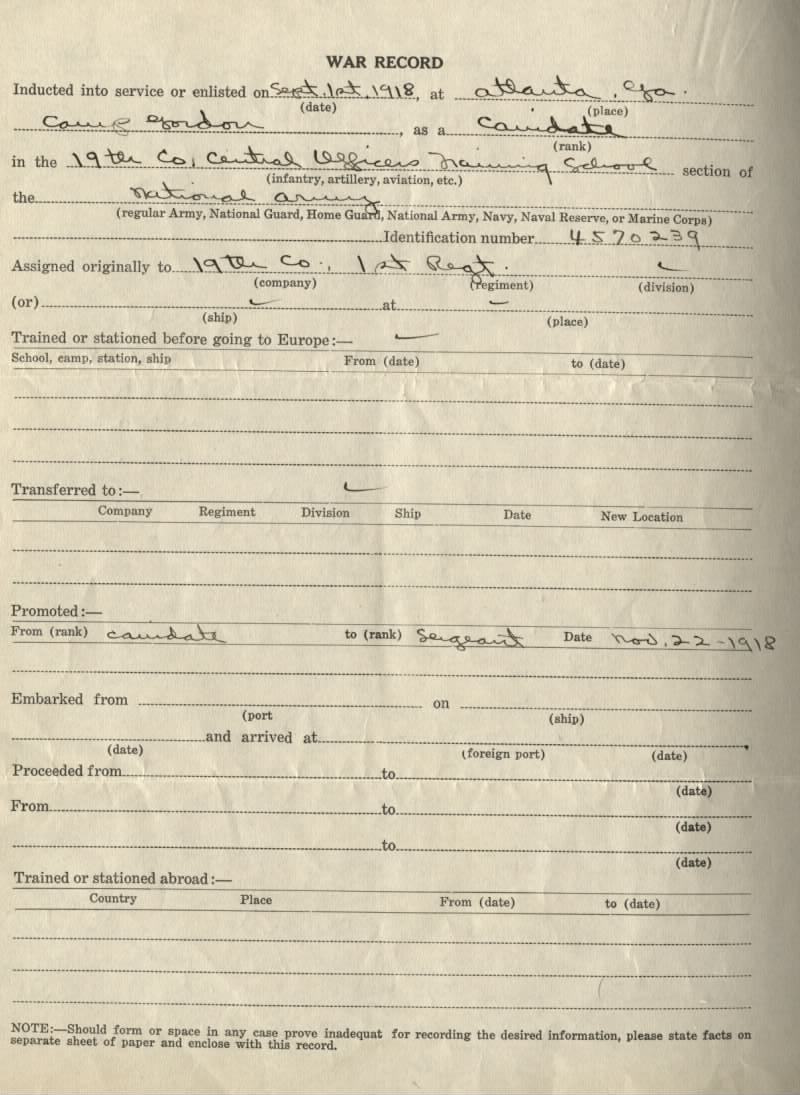 WAR RECORD
Inducted into service or enlisted on Sept. 1st, 1918, at Atlanta, Ga.
(date) (place)
Camp Gordon, as a Candidate
(rank)
in the 19th Co, Central Officers Training School section of
(infantry, artillery, aviation, etc.)
the National Army
(regular Army, National Guard, Home Guard, National Army, Navy, Naval Reserve, or Marine Corps)
Identification number 4570239
Assigned originally to 19th Co., 1st Regt.
(company) (regiment) (division)
(or) at
(ship) (place)
Trained or stationed before going to Europe:—
School, camp, station, ship From (date) to (date)
Transferred to:—
Company Regiment Division Ship Date New Location
Promoted:—
From (rank) Candidate to (rank) Sergeant Date Nov. 22-1918
Embarked from on
(port (ship)
and arrived at
(date) (foreign port) (date)
Proceeded from to
(date)
From to
(date)
to
(date)
Trained or stationed abroad:—
Country Place From (date) to (date)
NOTE:—Should form or space in any case prove inadequat for recording the desired information, please state facts on
separate sheet of paper and enclose with this record.